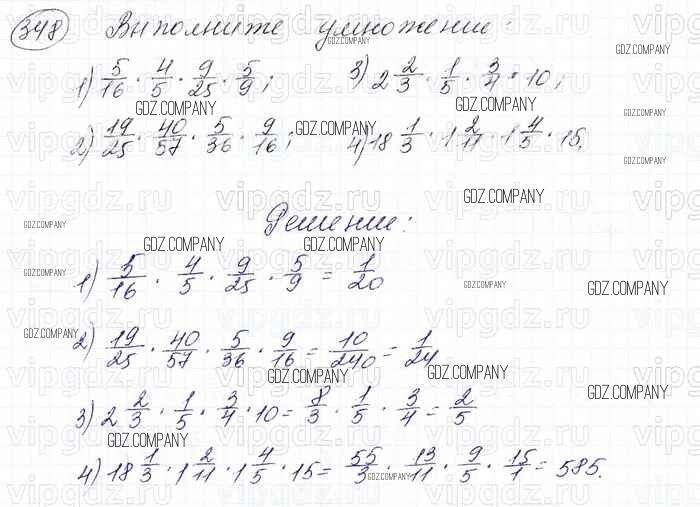 348 Выполните умножение:
1) 5/16 · 4/5 · 9/25 · 5/9; 3) 2 2/3 · 1/5 · 3/4 · 10;
2) 19/25 · 40/57 · 5/36 · 9/16; 4) 18 1/3 · 1 2/11 · 1 4/5 · 15.
Решение:
1) 5/16 · 4/5 · 9/25 · 5/9 = 1/20
2) 19/25 · 40/57 · 5/36 · 9/16 = 10/240 = 1/24
3) 2 2/3 · 1/5 · 3/4 · 10 = 8/3 · 1/5 · 3/4 = 2/5
4) 18 1/3 · 1 2/11 · 1 4/5 · 15 = 55/3 · 13/11 · 9/5 · 15/1 = 585.
GDZ.COMPANY
vipgdz.ru